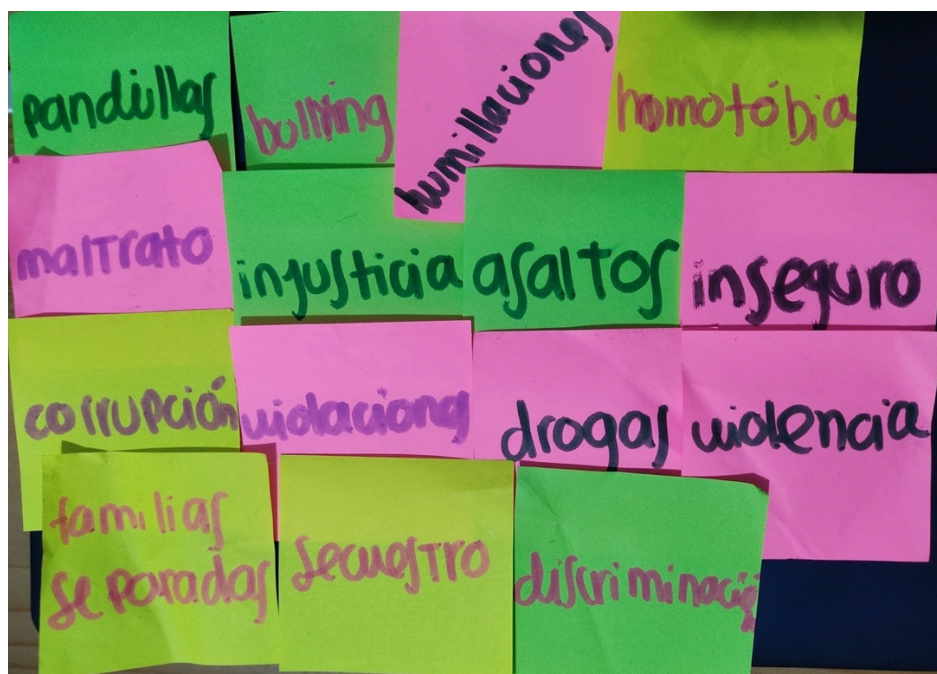 pandillas
bullying
humillaciones
homofóbia
maltrato
injusticia
asaltos
inseguro
corrupción
violaciones
drogas
violencia
familias
separadas
secuestro
discriminació